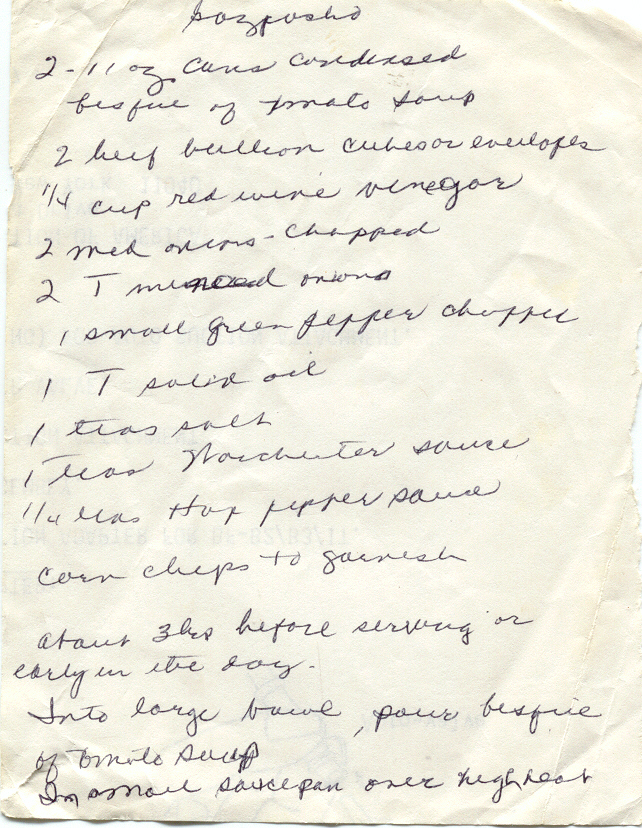 Gazposho
2-11 oz cans condensed
bisque of tomato soup
2 beef bullion cubes or envelopes
1/4 cup red wine vinegar
2 med onions - chopped
2 T minced onions
1 small green pepper chopped
1 T salad oil
1 teas salt
1 teas Worchester sauce
1/4 teas Hot pepper sauce
Corn chips to garnish
About 3 hrs before serving or
early in the day.
Into large bowl, pour bisque
of tomato soup
In small saucepan over high heat